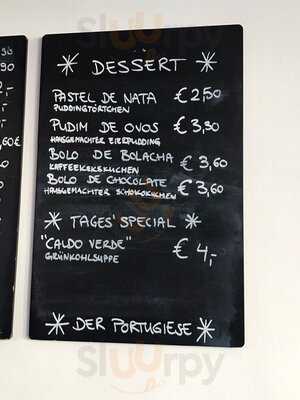 sluurpy
* DESSERT *
PASTEL DE NATA € 2,50
PUDDINGTÖRTCHEN
PUDIM DE OVOS € 3,30
HAUSGEMACHTER EIERPUDDING
BOLO DE BOLACHA € 3,60
KAFFEEKEKSKUCHEN
BOLO DE CHOCOLATE € 3,60
HAUSGEMACHTER SCHOKOKUCHEN
* TAGES' SPECIAL *
"CALDO VERDE" € 4,-
GRÜNKOHLSUPPE
* DER PORTUGIESE *
sluurpy